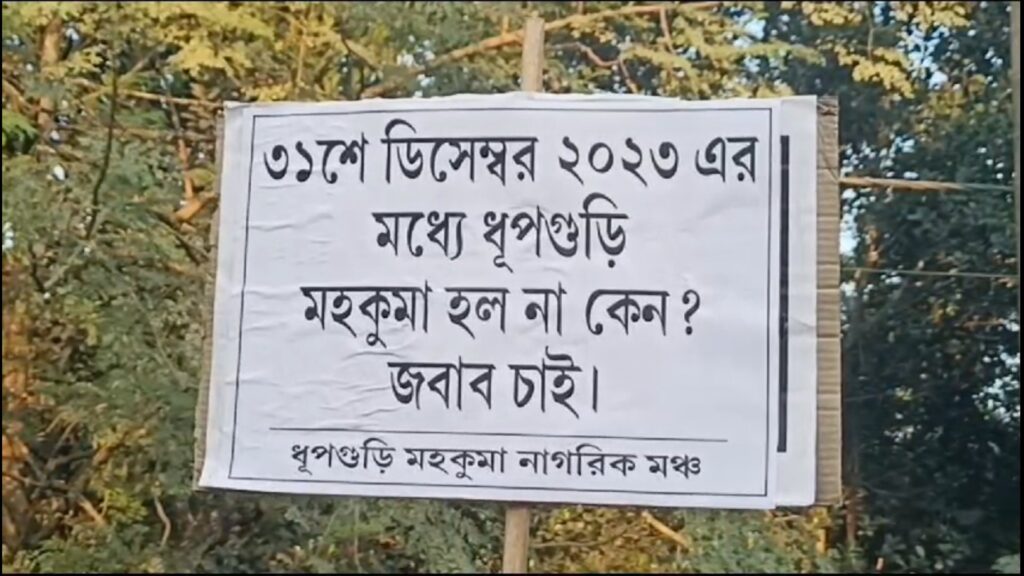 ৩১শে ডিসেম্বর ২০২৩ এর
মধ্যে ধূপগুড়ি
মহকুমা হল না কেন?
জবাব চাই।
ধূপগুড়ি মহকুমা নাগরিক মঞ্চ